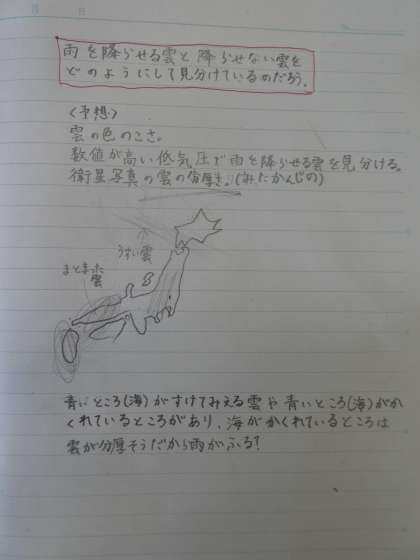 雨を降らせる雲と降らせない雲を
どのようにして見分けているのだろう。
〈予想〉
雲の色のこさ。
数値が高い低気圧で雨を降らせる雲を見分ける。
衛星写真の雲の分厚さ。(みたかんじの)
うすい雲
まとまった
雲
青いところ(海)がすけてみえる雲や青いところ(海)がか
くれているところがあり、海がかくれているところは
雲が分厚そうだから雨がふる?